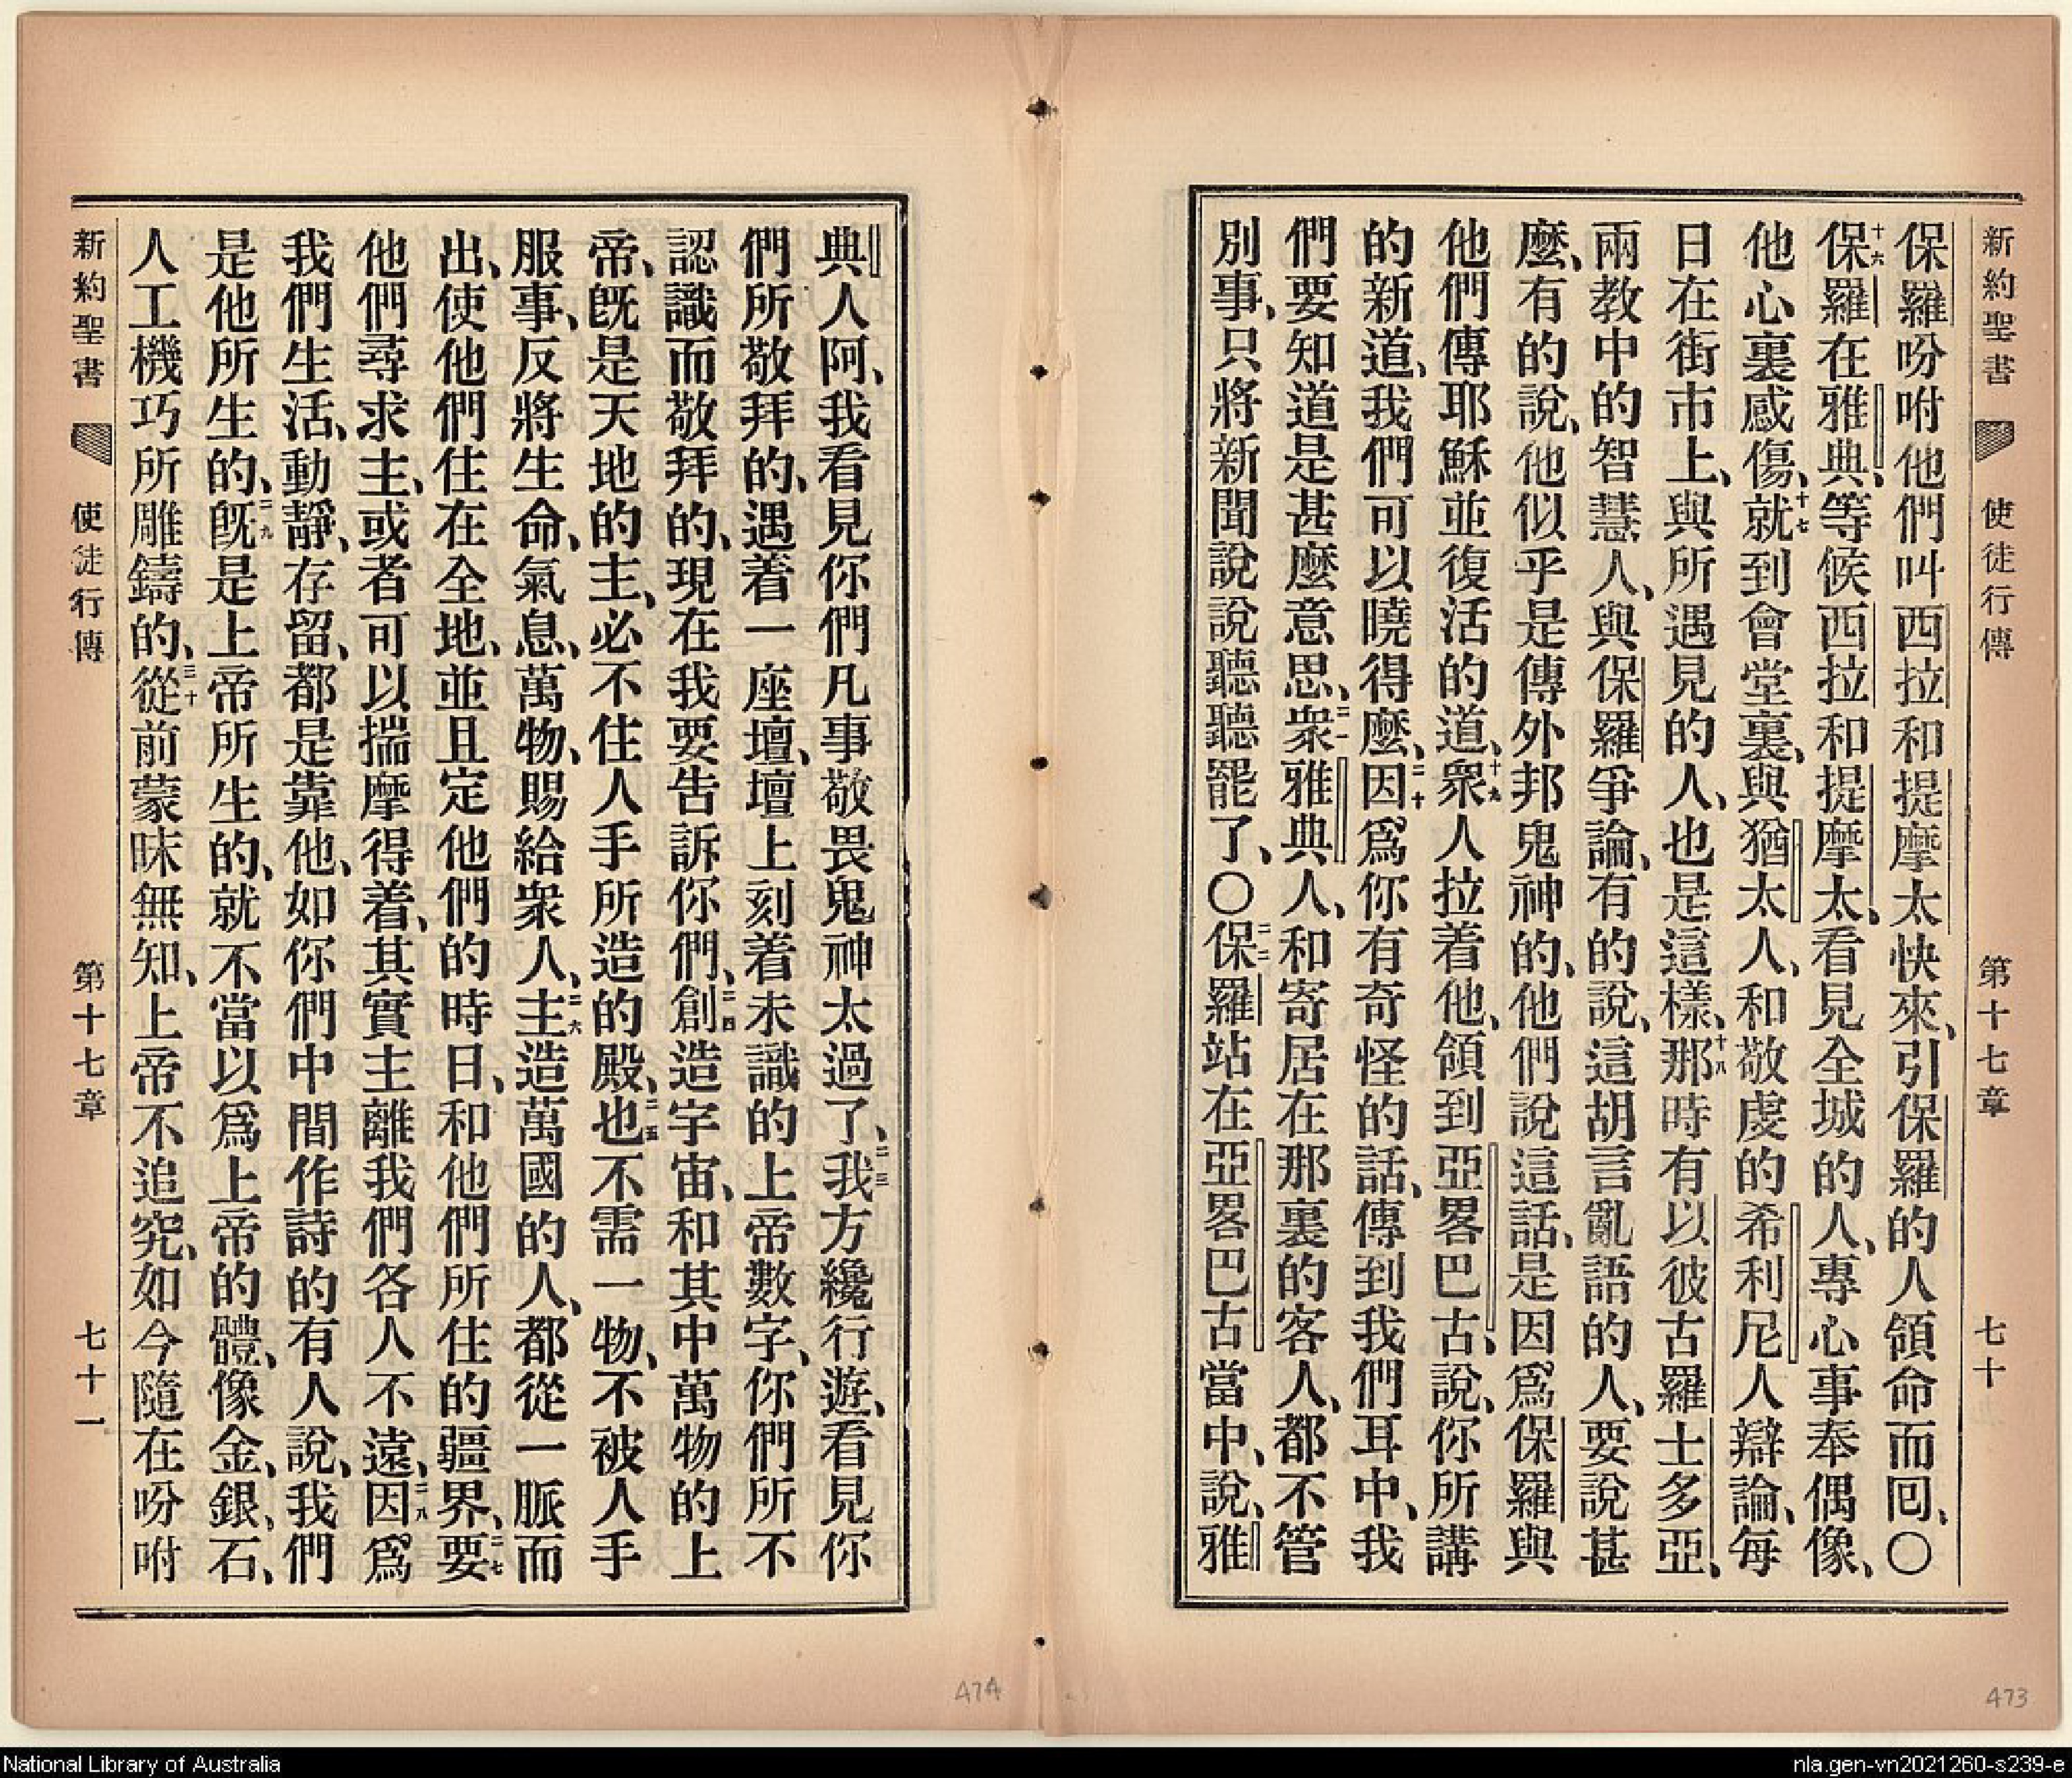 新約聖書 使徒行傳 第十七章 七十
保羅吩咐他們叫西拉和提摩太快來、引保羅的人領命而回、○
十六保羅在雅典、等候西拉和提摩太、看見全城的人、專心事奉偶像、
他心裏感傷、十七就到會堂裏、與猶太人、和敬虔的希利尼人辯論、每
日在街市上、與所遇見的人、也是這樣、十八那時有以彼古羅士多亞、
兩教中的智慧人、與保羅爭論、有的說、這胡言亂語的人、要說甚
麼、有的說、他似乎是傳外邦鬼神的、他們說這話、是因爲保羅與
他們傳耶穌並復活的道、十九衆人拉着他、領到亞畧巴古、說、你所講
的新道、我們可以曉得麼、二十因爲你有奇怪的話、傳到我們耳中、我
們要知道是甚麼意思、二一衆雅典人、和寄居在那裏的客人、都不管
別事、只將新聞說說聽聽罷了、○二二保羅站在亞畧巴古當中、說、雅
典人阿、我看見你們凡事敬畏鬼神太過了、二三我方纔行遊、看見你
們所敬拜的、遇着一座壇、壇上刻着未識的上帝數字、你們所不
認識而敬拜的、現在我要告訴你們、二四創造宇宙、和其中萬物的上
帝、旣是天地的主、必不住人手所造的殿、二五也不需一物、不被人手
服事、反將生命、氣息、萬物、賜給衆人、二六主造萬國的人、都從一脈而
出、使他們住在全地、並且定他們的時日、和他們所住的疆界、二七要
他們尋求主、或者可以揣摩得着、其實主離我們各人不遠、二八因爲
我們生活、動靜、存留、都是靠他、如你們中間作詩的有人說、我們
是他所生的、二九旣是上帝所生的、就不當以爲上帝的體、像金、銀、石、
人工機巧所雕鑄的、三十從前蒙昧無知、上帝不追究、如今隨在吩咐
新約聖書 使徒行傳 第十七章 七十一
474
473
National Library of Australia
nla.gen-vn2021260-s239-e